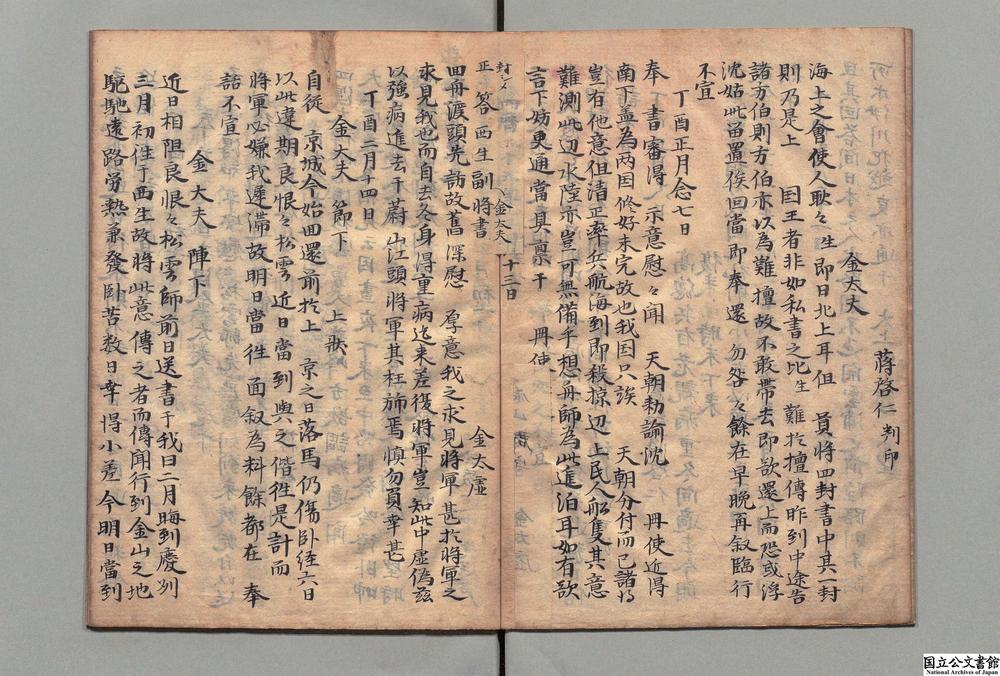 蔣啓仁 判印
金太夫
海上之會使人耿々生即日北上耳但 員將四封書中其一封
則乃是上 国王者非如私書之比生難於擅傳昨到中途告
諸方伯則方伯亦以為難擅故不敢帶去即欲還上而恐或浮
沈姑此留置俟回當即奉還勿咎々餘在早晚再叙臨行
不宣
丁酉正月念七日
奉 書審得 示意慰々聞 天朝勅諭沈 冊使近得
南下盖為两国修好未完故也我国只誒 天朝分付而已諸將
豈有他意但清正率兵航海到即殺掠辺上民人船隻其意
難測此辺水陸亦豈可無備乎想舟師為此進泊耳如有欲
言下妨更通當具禀于 冊使
十三日
封シメ
正 答西生副將書 金太夫
金太虛
回舟渡頭先訪故舊深慰 厚意我之求見將軍甚於將軍之
求見我也而自去冬身得重病迄未差復將軍豈知此中虛偽茲
以強病進去于蔚山江頭將軍其枉旆焉慎勿負幸甚
丁酉二月十四日
金太夫 節下
自從 京城今始回還前於上 京之日落馬仍傷卧经六日
以此違期良恨々松雲近日當到與之偕徃是計而
將軍必嫌我遲滞故明日當徃面叙為料餘都在 奉
話不宣
金太夫 陣下
近日相阻良恨々松雲師前日送書于我曰二月晦到慶州
三月初徃于西生故將此意傳之者而傳聞行到金山之地
駝馳遠路勞熱兼發卧苦数日幸得小差今明日當到
国立公文書館
National Archives of Japan